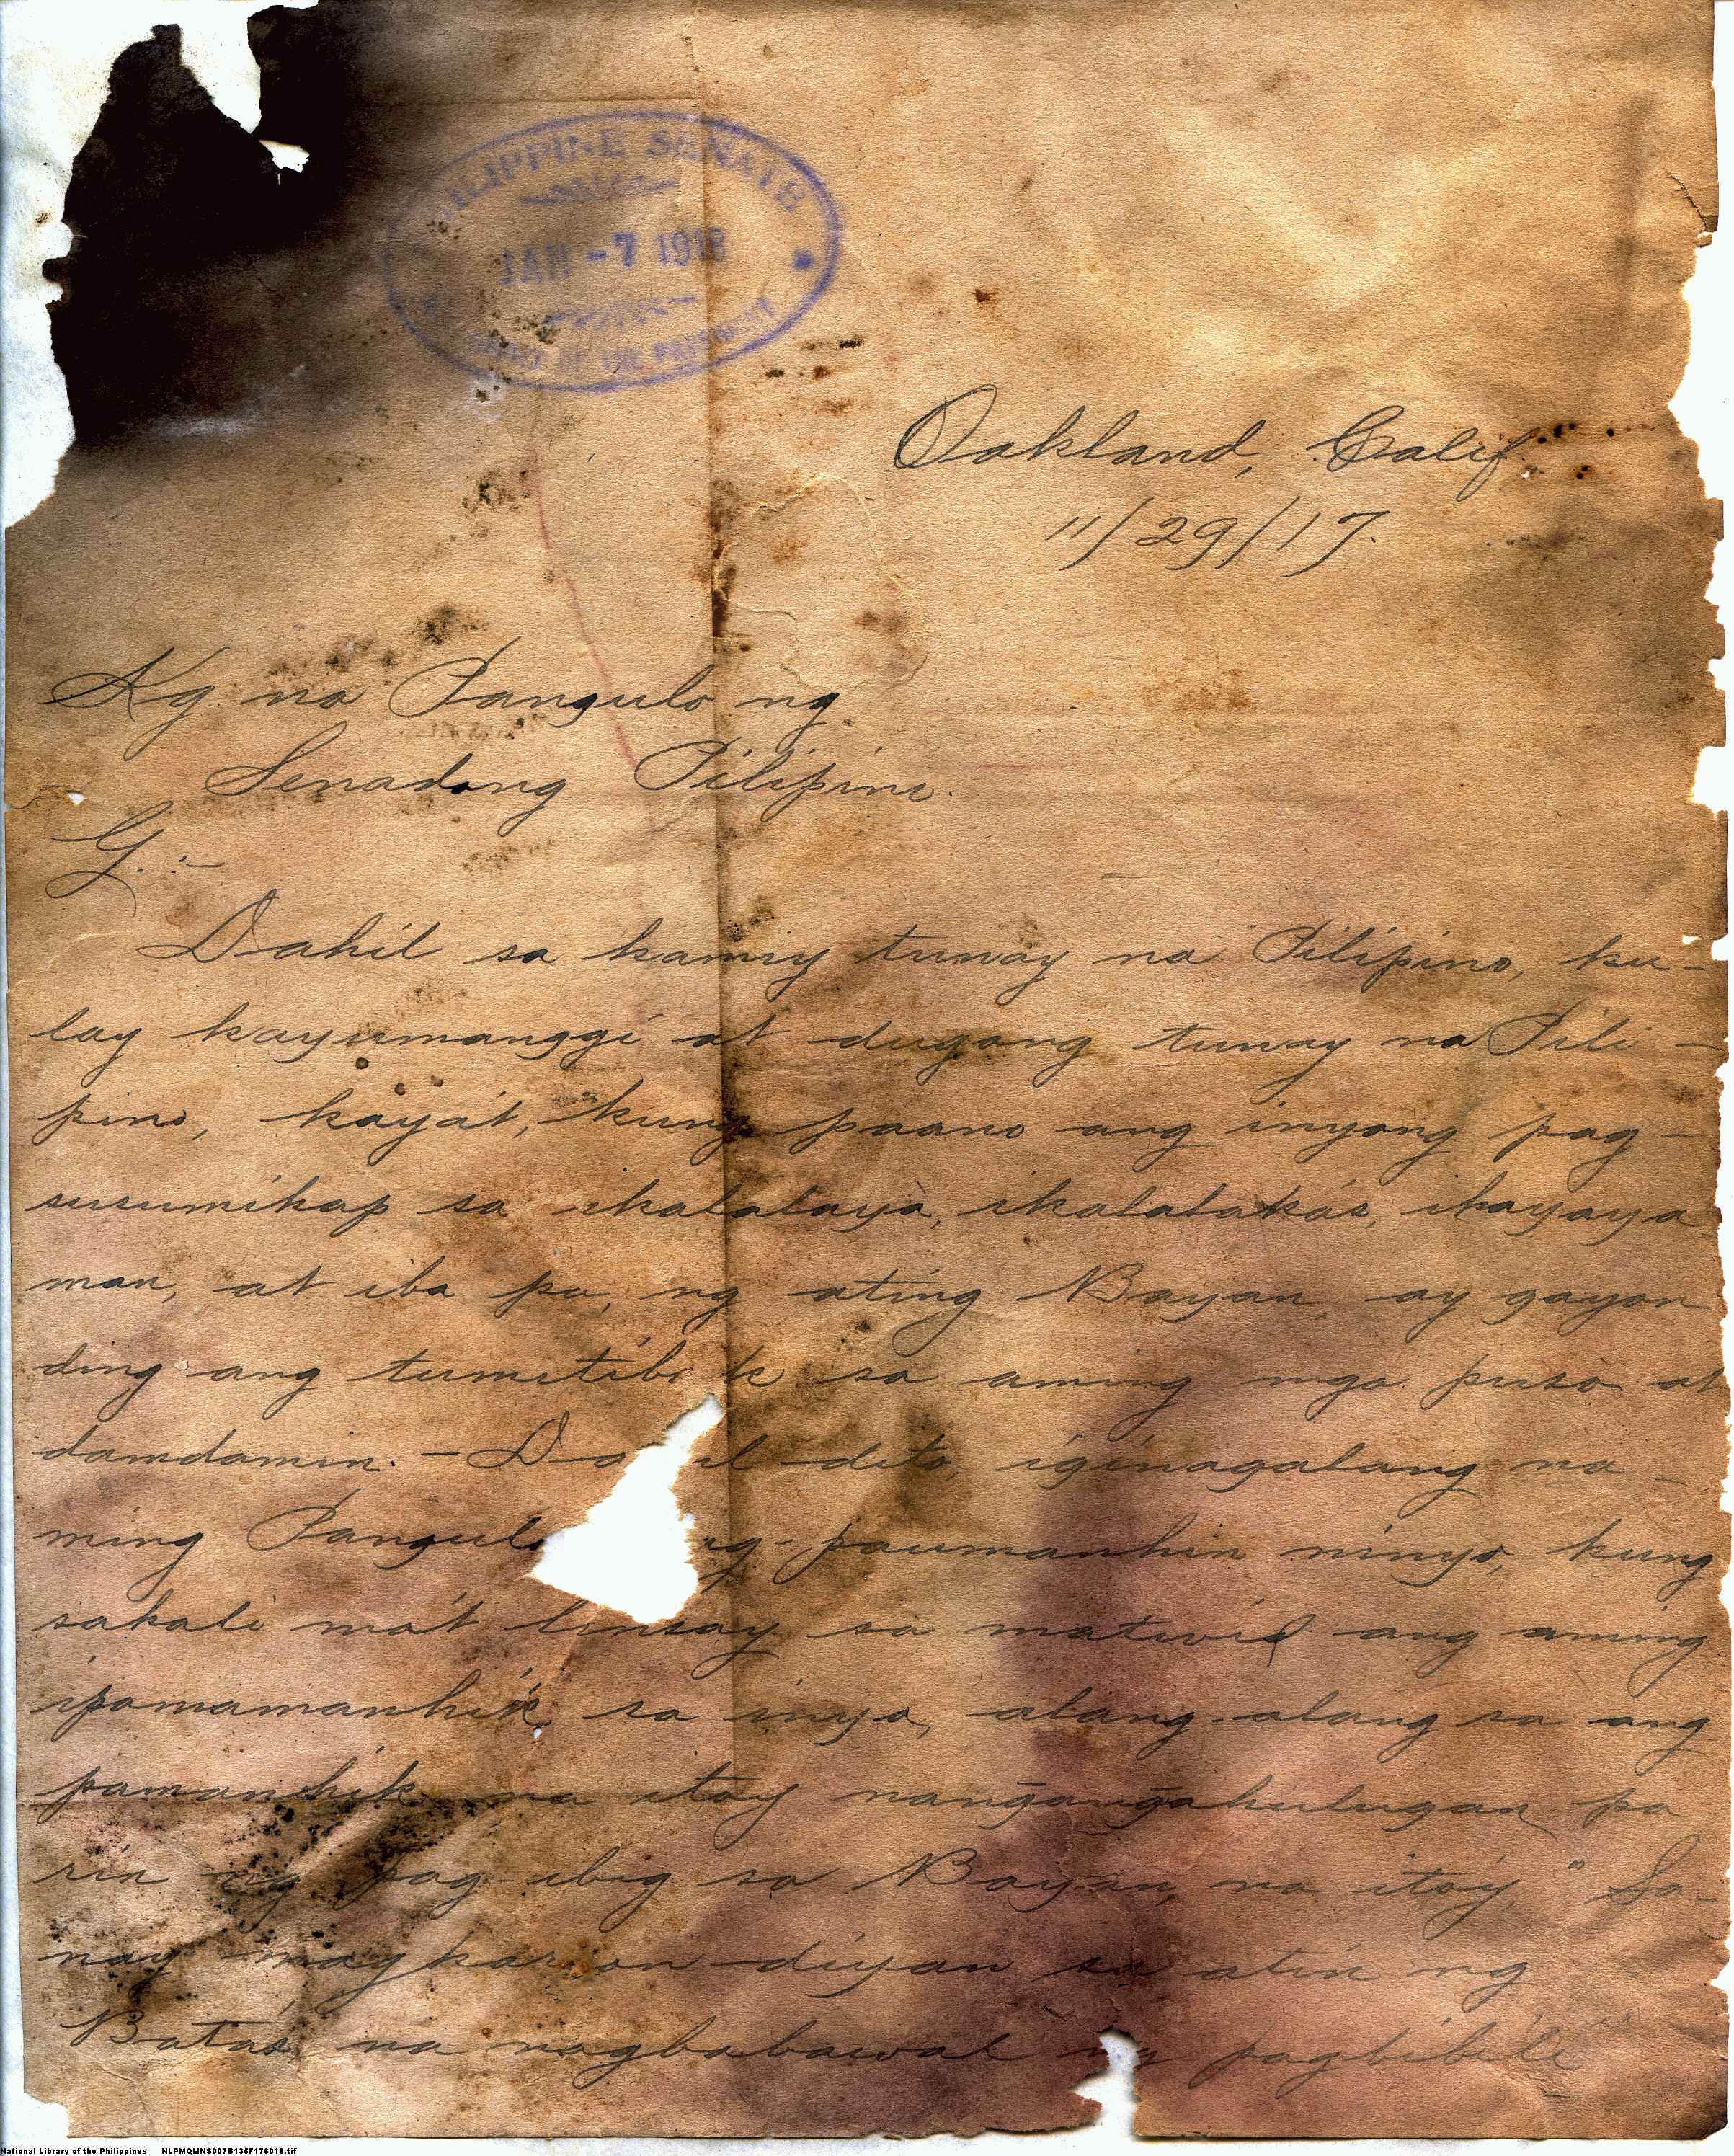 PHILIPPINE SENATE
JAN -7 1918
OFFICE OF THE PRESIDENT
Oakland, Calif.
11/29/17.
Kg. na Pangulo ng
Senadong Pilipino.
G. :-
Dahil sa kamiy tunay na Pilipino, ku-
lay kayumanggi at dugong tunay na Pili-
pino, kayát, kung paano ang inyong pag-
susumikap sa ikalalayà, ikalalakás, ikayaya
man, at iba pa, ng ating Bayan, ay gayon
ding ang tumitibok sa aming mga puso at
damdamin. - Da il dito, iginagalang na-
ming Pangulo ng paumanhin ninyo, kung
sakali mát linsay sa matwid ang aming
ipamamanhik sa inyo, alang-alang sa ang
pamanhik na itoy nangangahulugan pa
rin ng pag ibig sa Bayan, na itóy, "Sa-
nay magkaroon diyan sa atin ng
Batás, na nagbabawal ng pagbibili"
National Library of the Philippines NLPMQMNS007B135F176019.tif